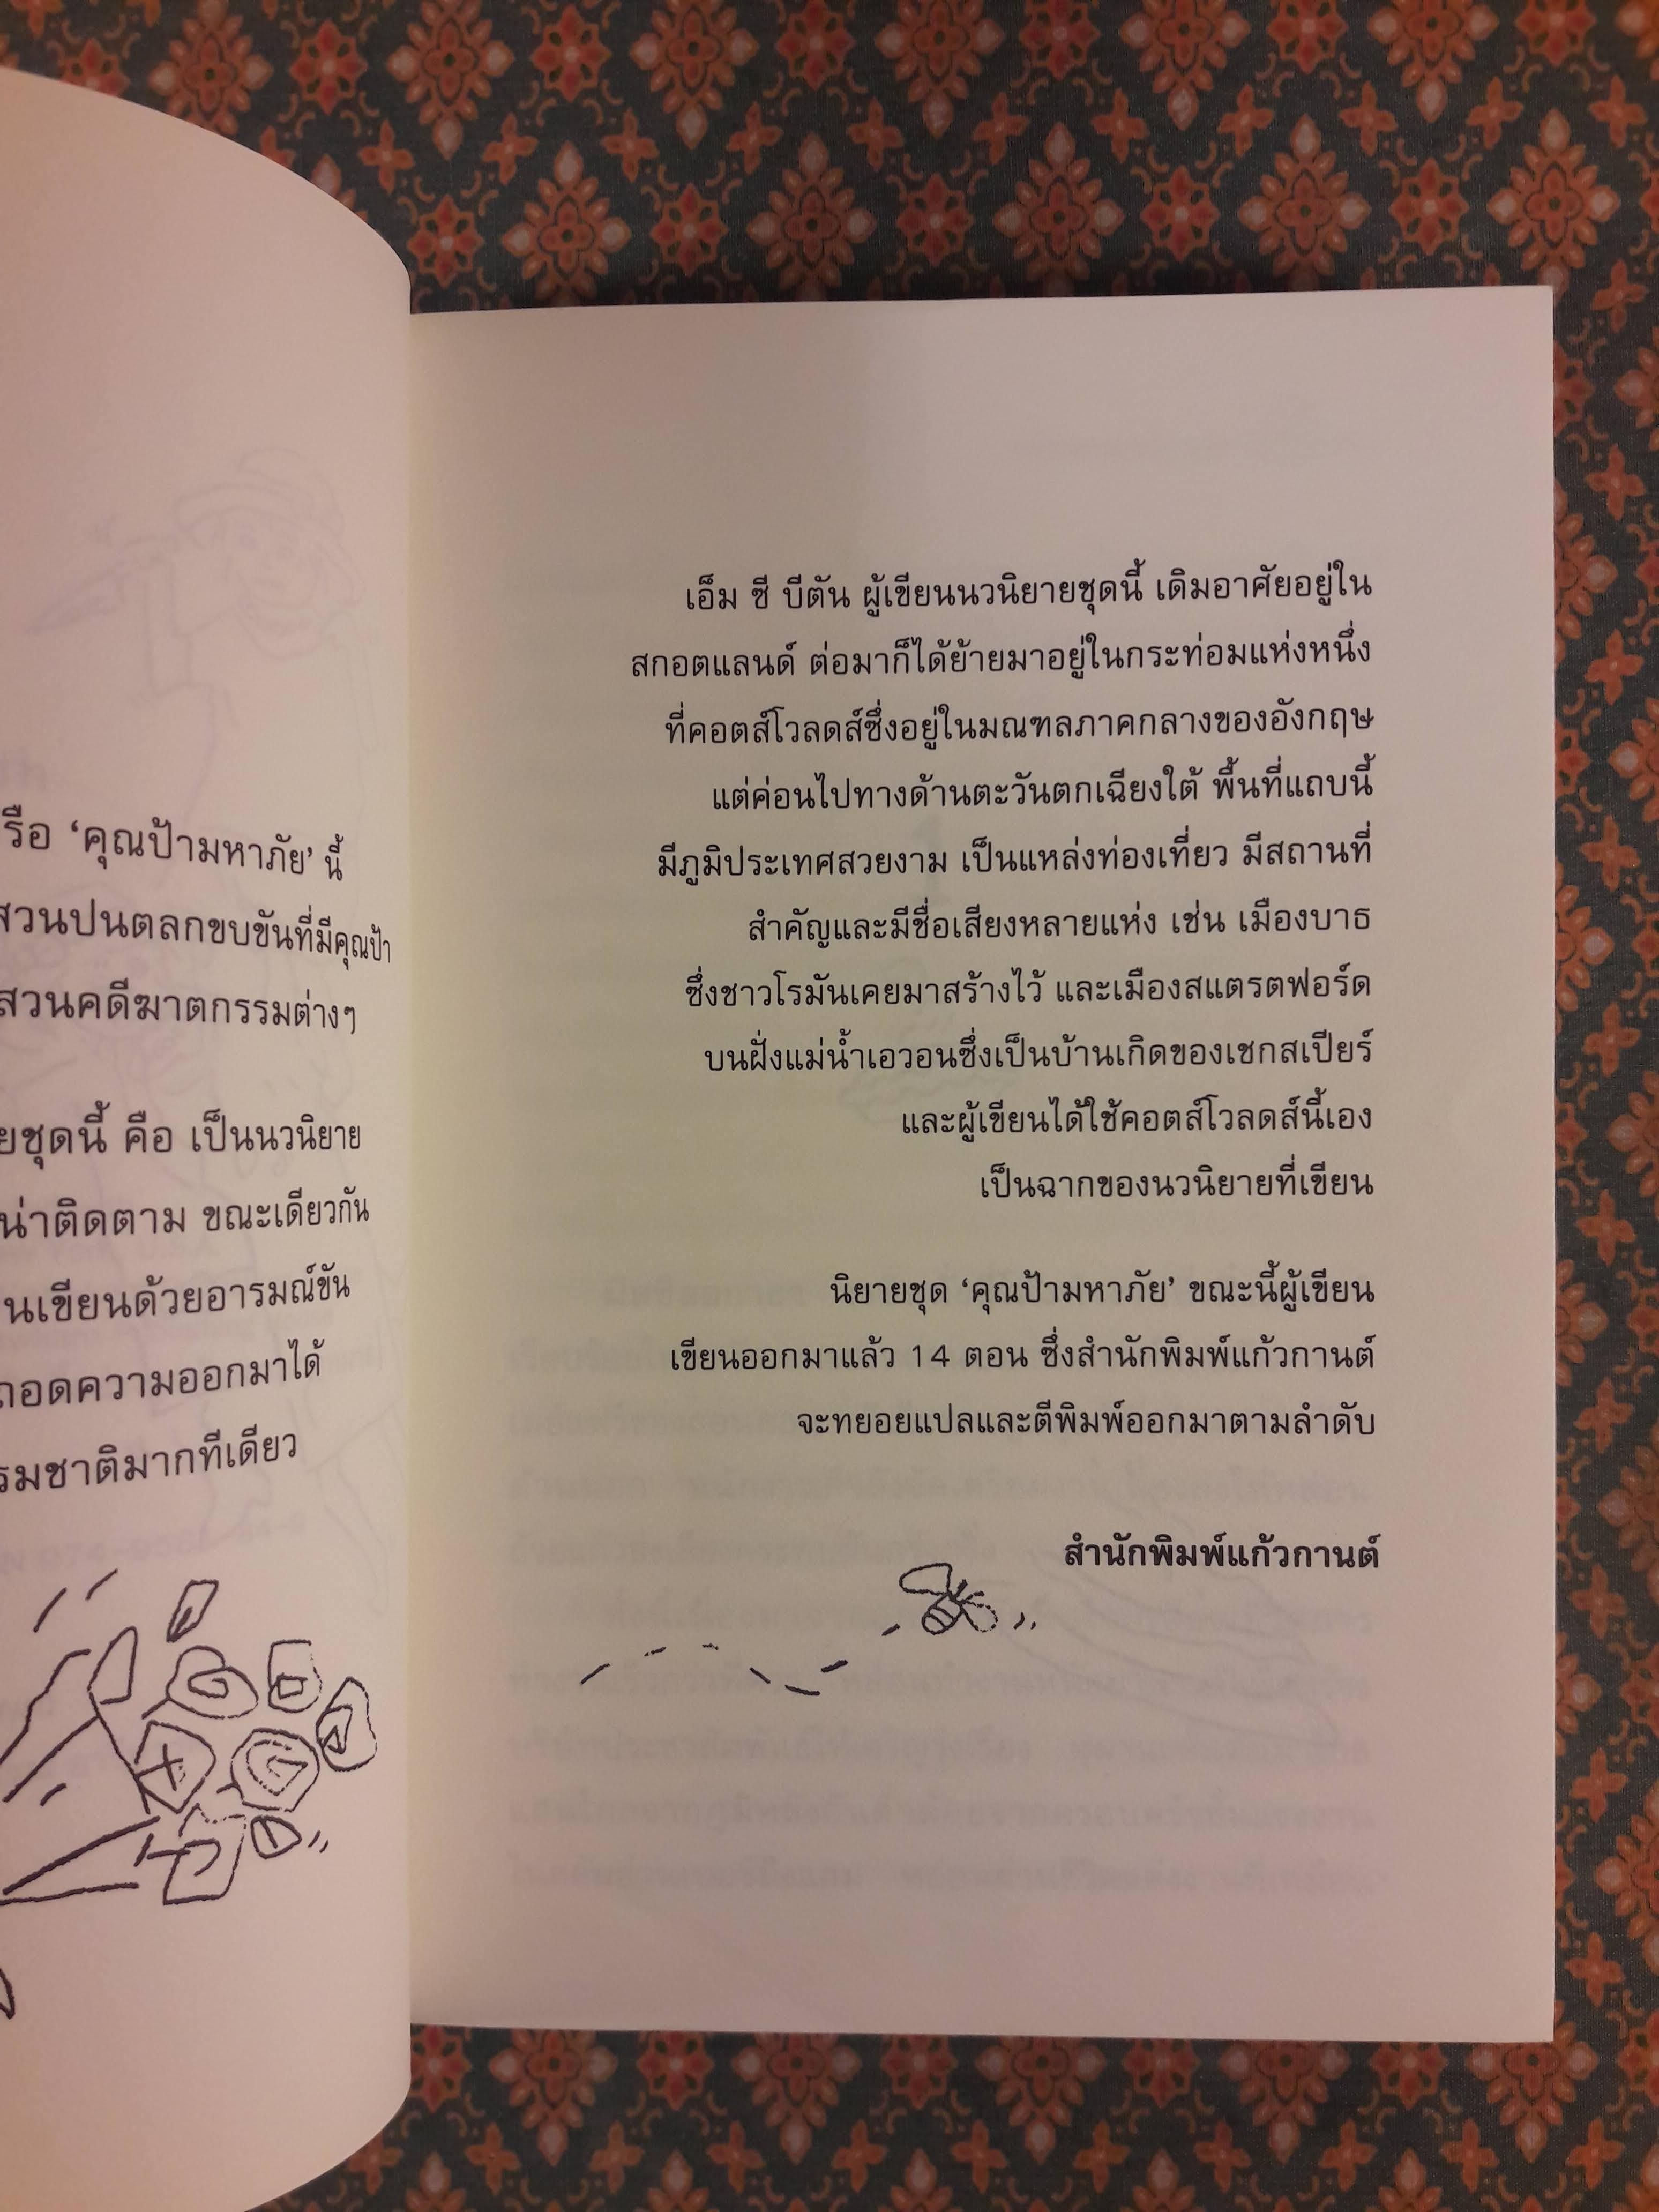 รือ ‘คุณป้ามหาภัย’ นี้
สวนปนตลกขบขันที่มีคุณป้า
สวนคดีฆาตกรรมต่างๆ
ยชุดนี้ คือ เป็นนวนิยาย
น่าติดตาม ขณะเดียวกัน
นเขียนด้วยอารมณ์ขัน
ถอดความออกมาได้
รมชาติมากทีเดียว
เอ็ม ซี บีตัน ผู้เขียนนวนิยายชุดนี้ เดิมอาศัยอยู่ใน
สกอตแลนด์ ต่อมาก็ได้ย้ายมาอยู่ในกระท่อมแห่งหนึ่ง
ที่คอตส์โวลดส์ซึ่งอยู่ในมณฑลภาคกลางของอังกฤษ
แต่ค่อนไปทางด้านตะวันตกเฉียงใต้ พื้นที่แถบนี้
มีภูมิประเทศสวยงาม เป็นแหล่งท่องเที่ยว มีสถานที่
สำคัญและมีชื่อเสียงหลายแห่ง เช่น เมืองบาธ
ซึ่งชาวโรมันเคยมาสร้างไว้ และเมืองสแตรตฟอร์ด
บนฝั่งแม่น้ำเอวอนซึ่งเป็นบ้านเกิดของเชกสเปียร์
และผู้เขียนได้ใช้คอตส์โวลดส์นี้เอง
เป็นฉากของนวนิยายที่เขียน
นิยายชุด ‘คุณป้ามหาภัย’ ขณะนี้ผู้เขียน
เขียนออกมาแล้ว 14 ตอน ซึ่งสำนักพิมพ์แก้วกานต์
จะทยอยแปลและตีพิมพ์ออกมาตามลำดับ
สำนักพิมพ์แก้วกานต์